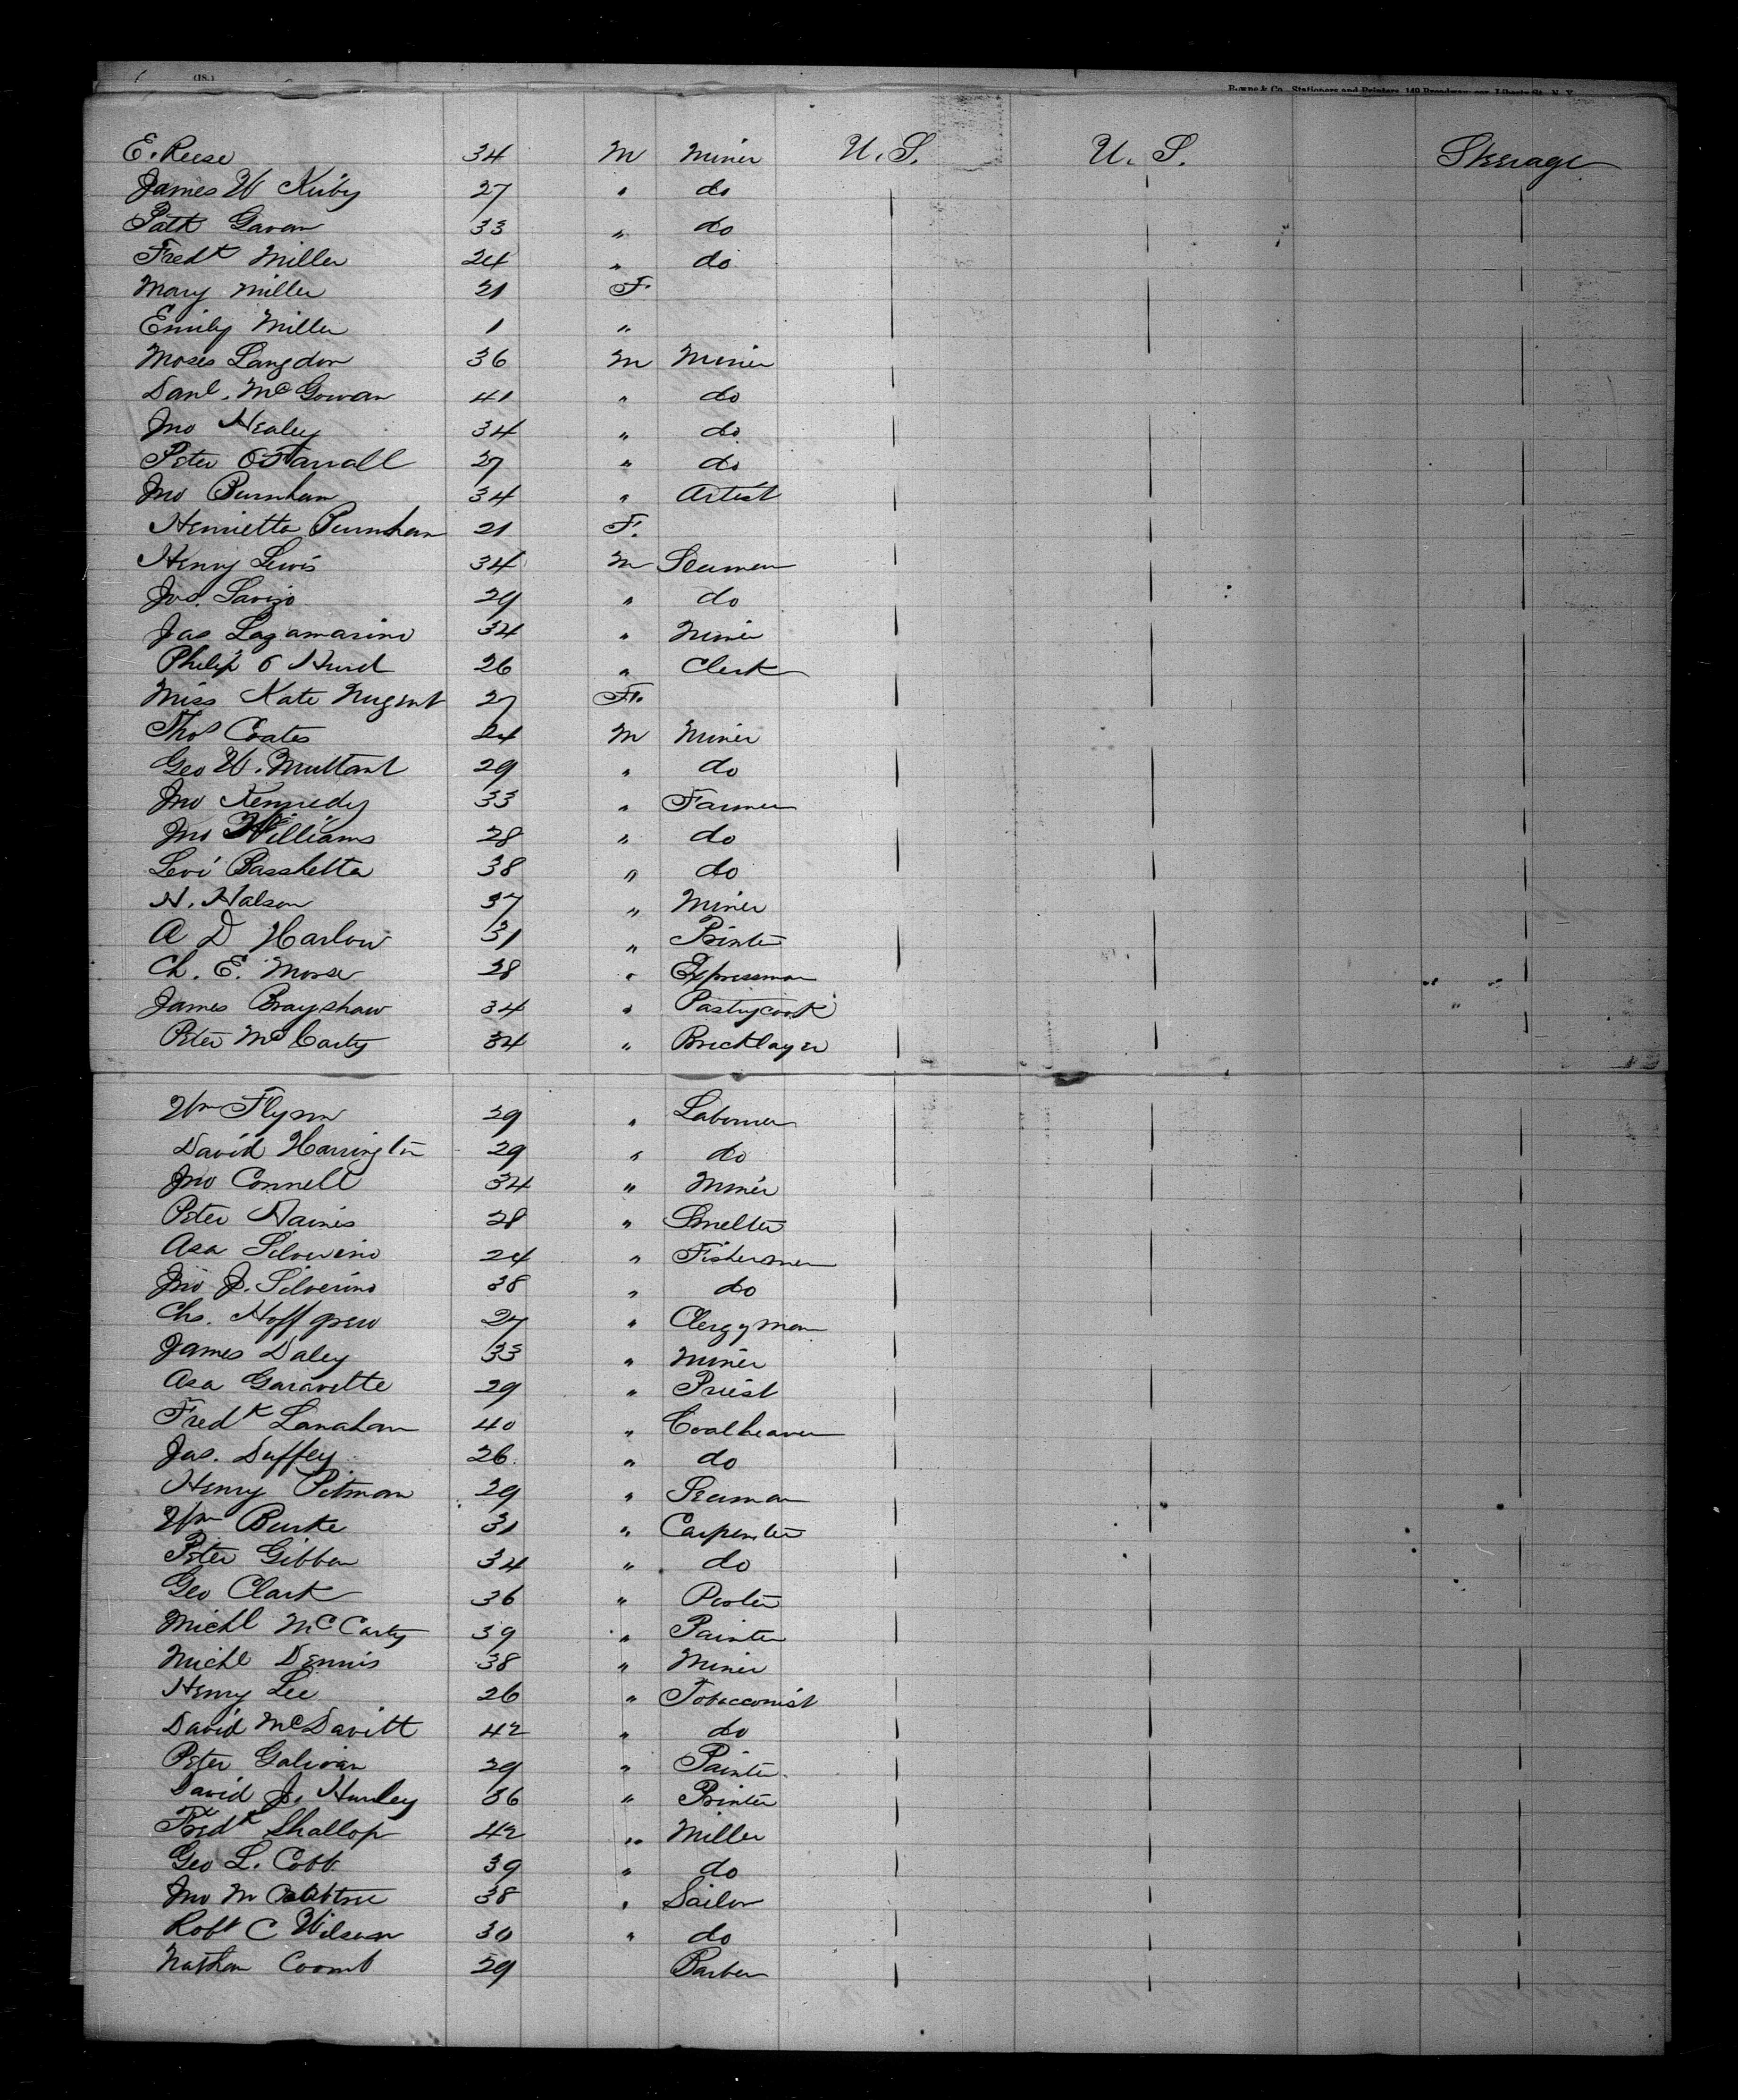 (18.)
Bowne & Co., Stationers and Printers, 149 Broadway, cor. Liberty St., N. Y.
E. Reese 34 M Miner U. S. U. S. Steerage
James W Kirby 27 " do
Patk Gavan 33 " do
Fredk Miller 24 " do
Mary Miller 21 F.
Emily Miller 1 "
Moses Langdon 36 M Miner
Danl. McGowan 41 " do
Jno Healey 34 " do
Peter O'Farrall 27 " do
Jno Burnham 34 " Artist
Henrietta Burnham 21 F.
Henry Lewis 34 M Seaman
Jos. 29 " do
Jas Lagamarino 34 " Miner
Philip O Hurd 26 " Clerk
Miss Kate Nugent 27 F.
Thos Coates 24 M Miner
Geo W. 29 " do
Jno Kennedy 33 " Farmer
Jno Williams 28 " do
Levi Basshetta 38 " do
H. Halson 37 " Miner
A D Harlow 31 " Printer
Ch. E. Morse 28 " Expressman
James Brayshaw 34 " Pastrycook
Peter McCarty 34 " Bricklayer
Wm Flynn 29 " Laborer
David Harrington 29 " do
Jno Connell 34 " Miner
Peter Haines 28 " Smelter
Asa Silverino 24 " Fisherman
Jno J. Silverino 38 " do
Chs. Hoffgrew 27 " Clergyman
James Daley 33 " Miner
Asa Garavelte 29 " Priest
Fredk Lanahan 40 " Coalheaver
Jas. Duffey 26 " do
Henry Pitman 29 " Seaman
Wm Burke 31 " Carpenter
Peter Gibbon 34 " do
Geo Clark 36 " Porter
Michl McCarty 39 " Painter
Michl Dennis 38 " Miner
Henry Lee 26 " Tobacconist
David McDavitt 42 " do
Peter Galivan 29 " Painter
David J. Hurley 36 " Printer
Fredk Shallop 42 " Miller
Geo L. Cobb 39 " do
Jno M Crabtree 38 " Sailor
Robt C Wilson 30 " do
Nathan Coomb 29 Barber